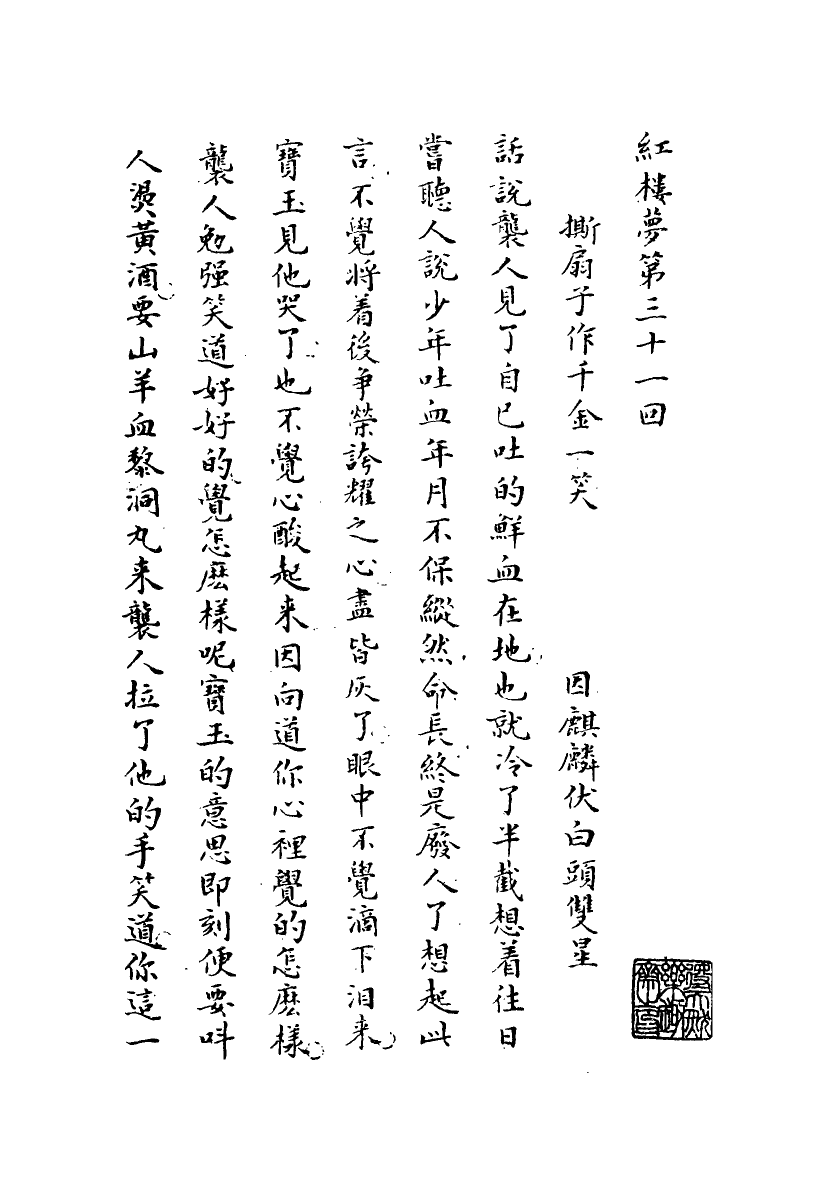 紅楼夢第三十一囬
撕扇子作千金一笑　因麒麟伏白頭雙星
話說襲人見了自已吐的鮮血在地也就冷了半截想着往日
嘗聽人說少年吐血年月不保縱然命長終是廢人了想起此
言不覺將着後爭榮誇耀之心盡皆灰了眼中不覺滴下泪来
寳玉見他哭了也不覺心酸起来因向道你心裡覺的怎麽樣
襲人勉强笑道好好的覺怎麽樣呢寳玉的意思即刻便要呌
人燙黃酒要山羊血黎洞丸来襲人拉了他的手笑道你這一